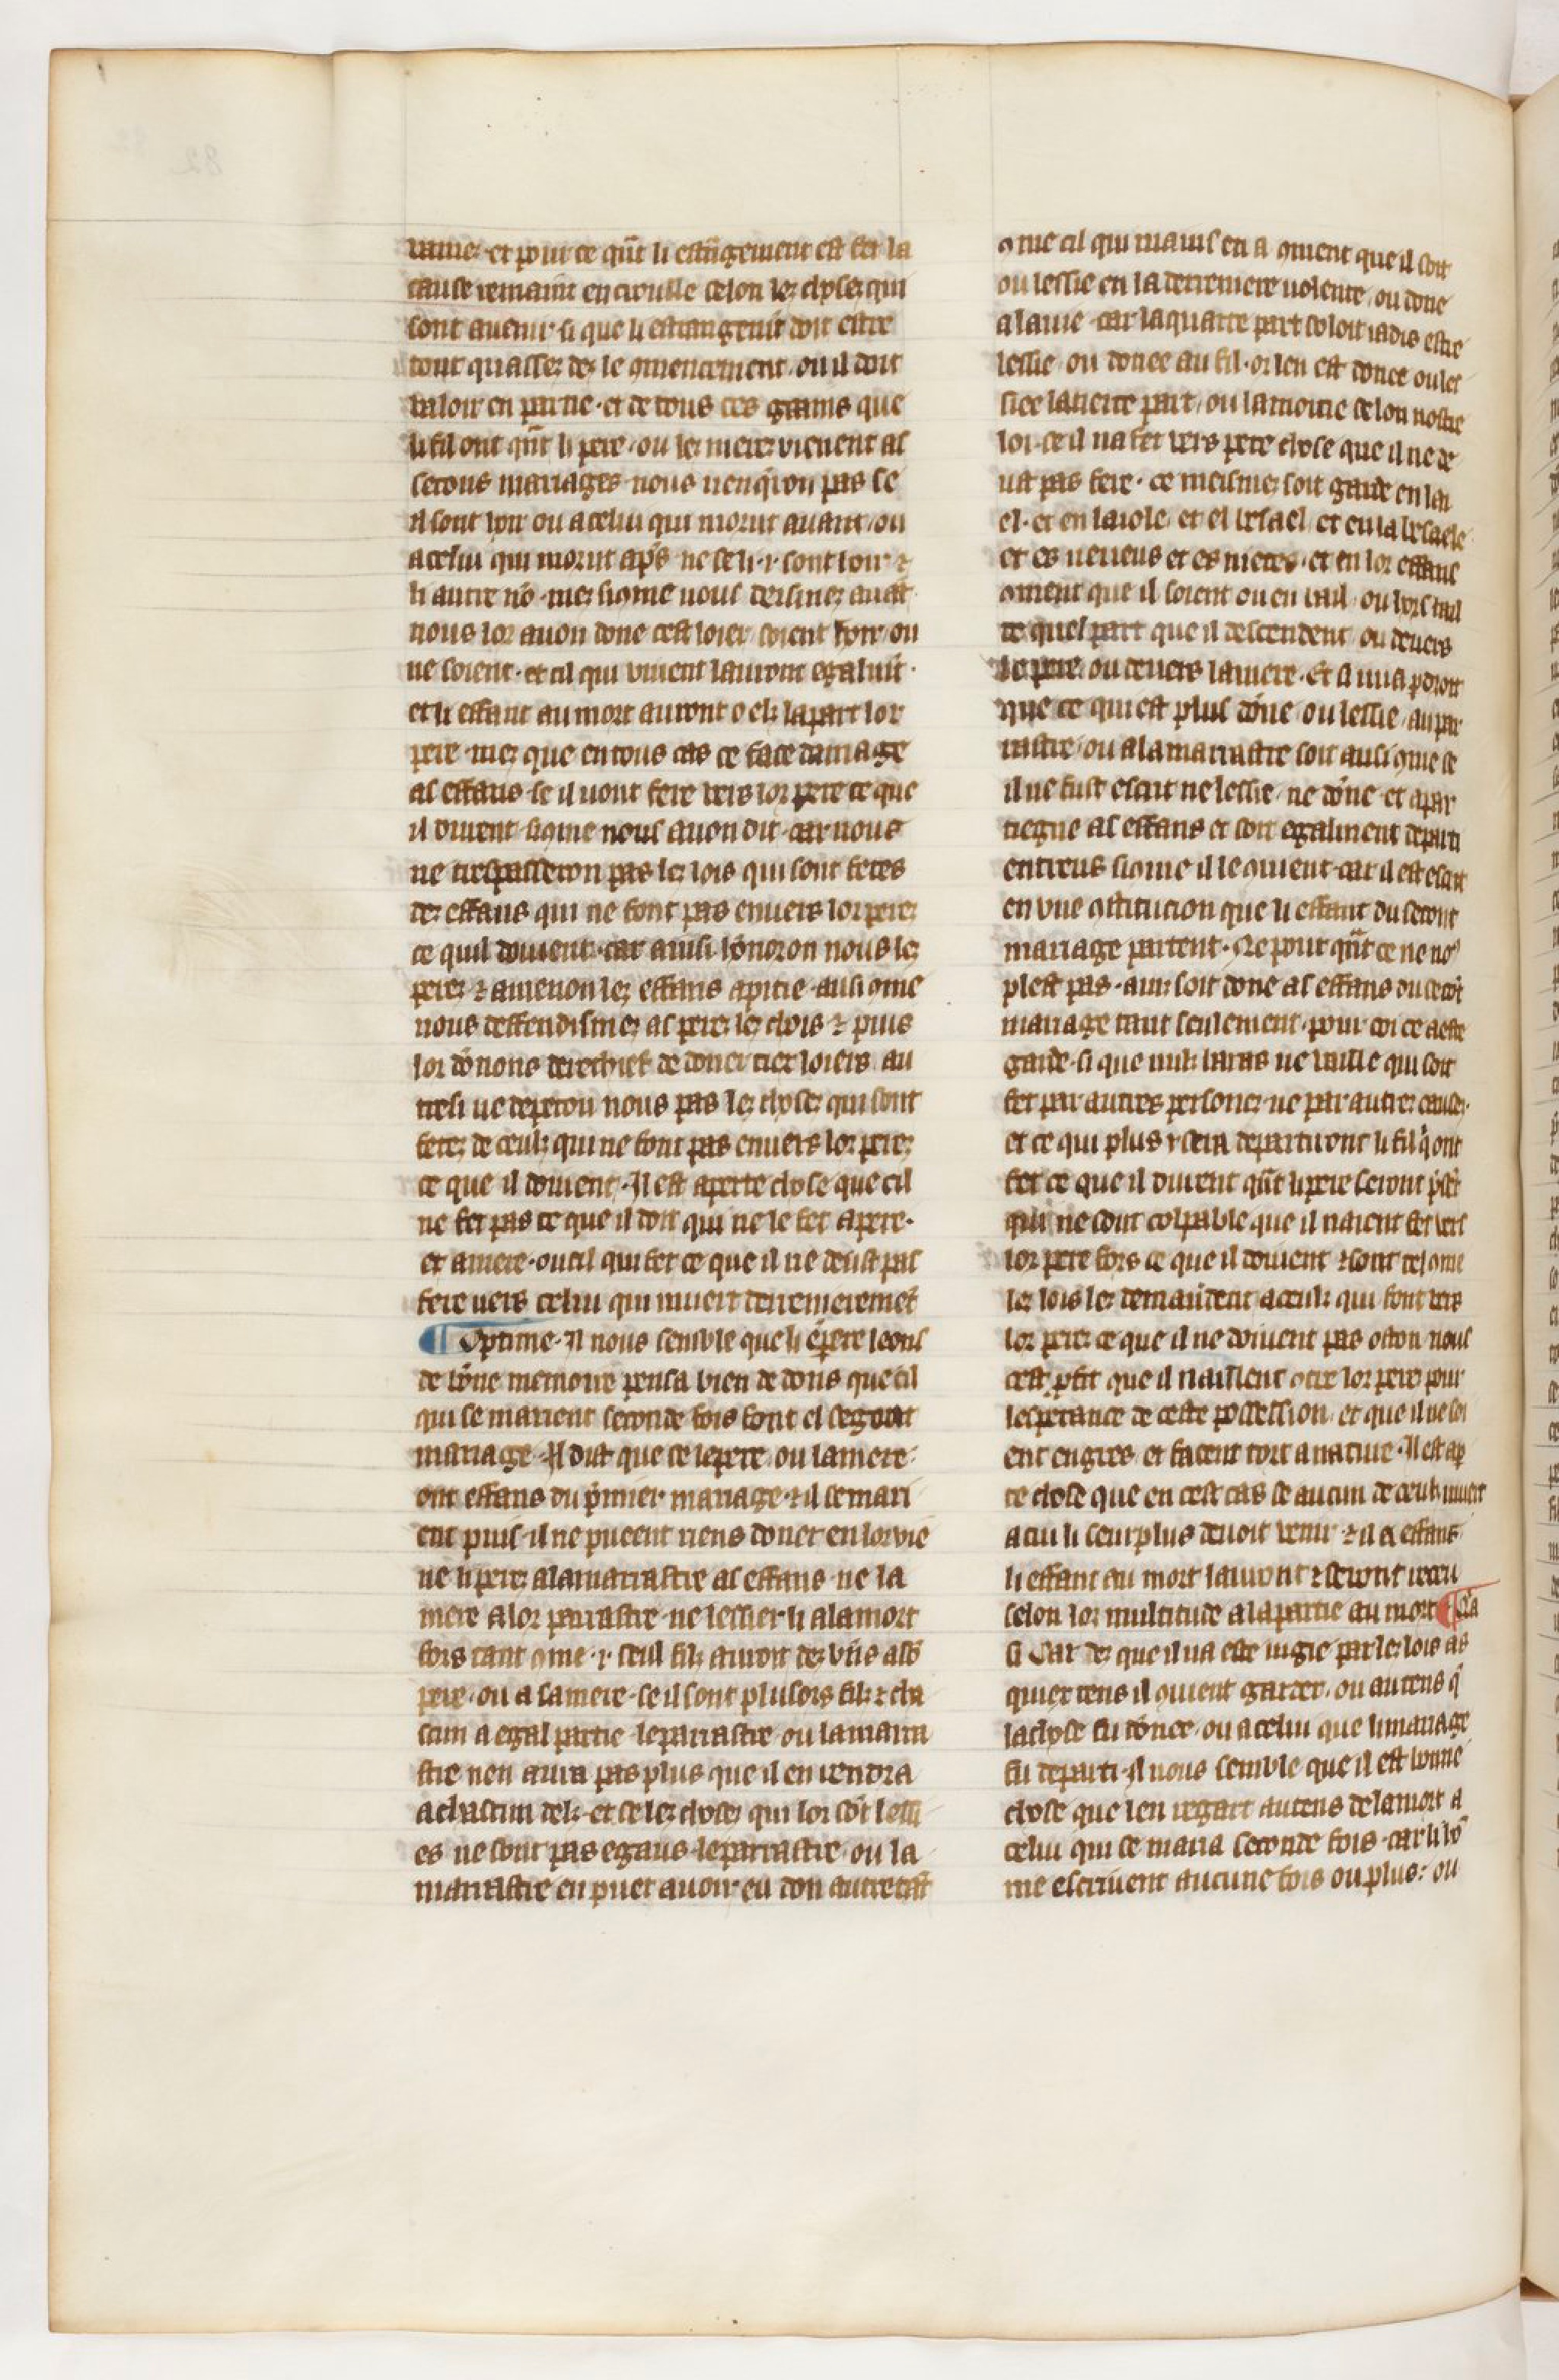 uaine· et pour ce qñt li estrãgement est fet la
cause remaint en cirulle selon lez choses qui
sont auenir· si que li estrangemẽt doit estre
tout quassez dez le ꝯmencement· ou il doit
valoir en partie· et de tous ces gaains que
li fil ont qñt li pere· ou lez merez vienent as
secons mariages· nous nenq̃ron pas se
il sont loir ou a celui qui morut auant· ou
a celui qui morut apˀs· ne se li ·i· sont loir ⁊
li autre nõ· mez si ꝯme nous deismez auãt
nous lor auon done cest loier soient hoir ou
ne soient· et cil qui viuent lauront egalmẽt·
et li effant au mort auront o elz la part lor
pere· mez que en tous cas ce face damage
as effans· se il nont fere vers lor pere ce que
il diuent si ꝯme nous auon dit· car nous
ne trespasseron pas lez lois qui sont fetes
dez effans qui ne font pas enuers lor perez
ce quil doiuent· car ainsi hõnoron nous lez
perez ⁊ amenon lez effans a pitie· ausi ꝯme
nous deffendismez as perez lez chois ⁊ puis
lor dõnons derechief de doner tiex loiers· au
tresi ne depeton nous pas lez chosez qui sont
fetez de ceulz qui ne font pas enuers lor perez
ce que il doiuent· Il est aperte chose que cil
ne fet pas ce que il doit qui ne le fet a pere·
et a mere· ou cil qui fet ce que il ne deust pas
fere uers celui qui muert derrenieremẽt
¶ Optime· Il nous semble que li ẽpere leons
de bõne memoire pensa bien de dons que cil
qui se marient seconde fois font el segont
mariage· Il dist que se le pere· ou la mere·
ont effans du p̃mier mariage· ⁊ il se mari
ent puis· il ne pueent riens doner en lor vie
ne li perez a la marrastre as effans· ne la
mere a lor parrastre· ne lessier li a la mort
fors tant ꝯme ·i· seul filz auroit dez biẽs a sõ
pere· ou a sa mere· se il sont plusors filz ⁊ cha
scun a egal partie· le parrastre ou la marra
stre nen aura pas plus que il en vendra
a chascun delz· et se lez chosez qui lor sõt lessi
es ne sont pas egaus· le parrastre· ou la
marrastre en puet auoir en don autretãt
ꝯme cil qui mains en a ꝯment que il soit
ou lessie en la derreniere uolente· ou done
a la uie· car la quarte part soloit iadis estre
lessie· ou donee au fil· or len est donee ou les
siee la tierce part· ou la moitie selon nostre
loi· se il na fet vers pere chose que il ne de
ust pas fere· ce meismez soit garde en lai
el· et en laiole· et el besael· et en la besaele
et es neueus et es nieces· et en lor effans
ꝯment que il soient ou en bail· ou hors bail
de quel part que il descendent ou deuers
le pere· ou deuers la mere· Et si ni a p droit
que ce qui est plus dõne ou lessie· au par
rastre· ou a la marrastre soit ausi ꝯme se
il ne fust escrit ne lessie· ne dõne· et apar
tiegne as effans et soit egalment departi
entreus si ꝯme il le ꝯuient· car il est escrit
en vne ꝯstitucion que li effant du secont
mariage partent· Ne pour qñt ce ne noˀ
plest pas· ains soit done as effans du p̃mier
mariage tant seulement· pour coi ce a este
garde· si que nulz baras ne vaille qui soit
fet par autres personez· ne par autrez causez·
et ce qui plus i sera departiront li fil q̃ ont
fet ce que il diuent qñt li pere seront p̃sẽt
qui ne sont colpable que il naient fet vers
lor pere fors ce que il doiuent ⁊ sont tel ꝯme
lez lois lez demandent a ceulz qui font vers
lor perez ce que il ne doiuent pas oston nous
cest pfit que il naillent ꝯtre lor pere pour
lesperance de ceste possession· et que il ne soi
ent engres· et facent tort a nature· Il est ap
te chose que en cest cas se aucun de ceulz muert
a cui li seurplus deuoit venir· ⁊ il a effans
li effant au mort lauront ⁊ seront receu
selon lor multitude a la partie au mort ¶ Q̃a
si Car de que il na este iugie par lez lois as
quiex tens il ꝯuient garder· ou au tens q̃
la chose fu dõnee· ou a celui que li mariage
fu departi· Il nous semble que il est bonne
chose que len regart au tens de la mort a
celui qui se maria seconde fois· car li hõ
me escriuent aucune fois ou plus· ou